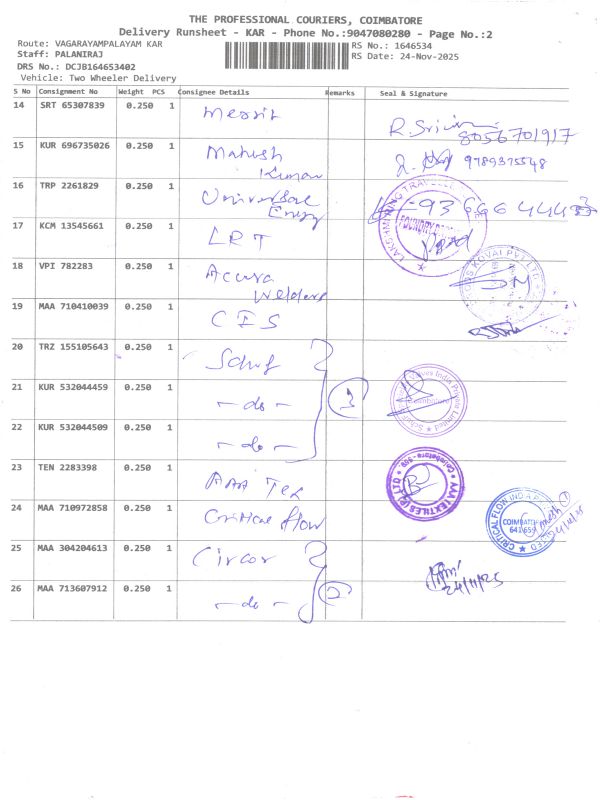 THE PROFESSIONAL COURIERS, COIMBATORE
Delivery Runsheet - KAR - Phone No.:9047080280 - Page No.:2
Route: VAGARAYAMPALAYAM KAR
RS No.: 1646534
Staff: PALANIRAJ
RS Date: 24-Nov-2025
DRS No.: DCJB164653402
Vehicle: Two Wheeler Delivery
S No Consignment No Weight PCS Consignee Details Remarks Seal & Signature
14 SRT 65307839 0.250 1 Merrit
8056701917
15 KUR 696735026 0.250 1 Mahesh
Kumar
9789375548
16 TRP 2261829 0.250 1 Universal
Energy
17 KCM 13545661 0.250 1 LRT
18 VPI 782283 0.250 1 Accura
Welders
19 MAA 710410039 0.250 1 CIS
20 TRZ 155105643 0.250 1
21 KUR 532044459 0.250 1 - do - 3
22 KUR 532044509 0.250 1 - do -
23 TEN 2283398 0.250 1 AAA Tex
MAA TEXTILES (P) LTD
24 MAA 710972858 0.250 1 Critical flow
COIMBATORE
25 MAA 304204613 0.250 1 Circor
26 MAA 713607912 0.250 1 - do - 2
24/11/25